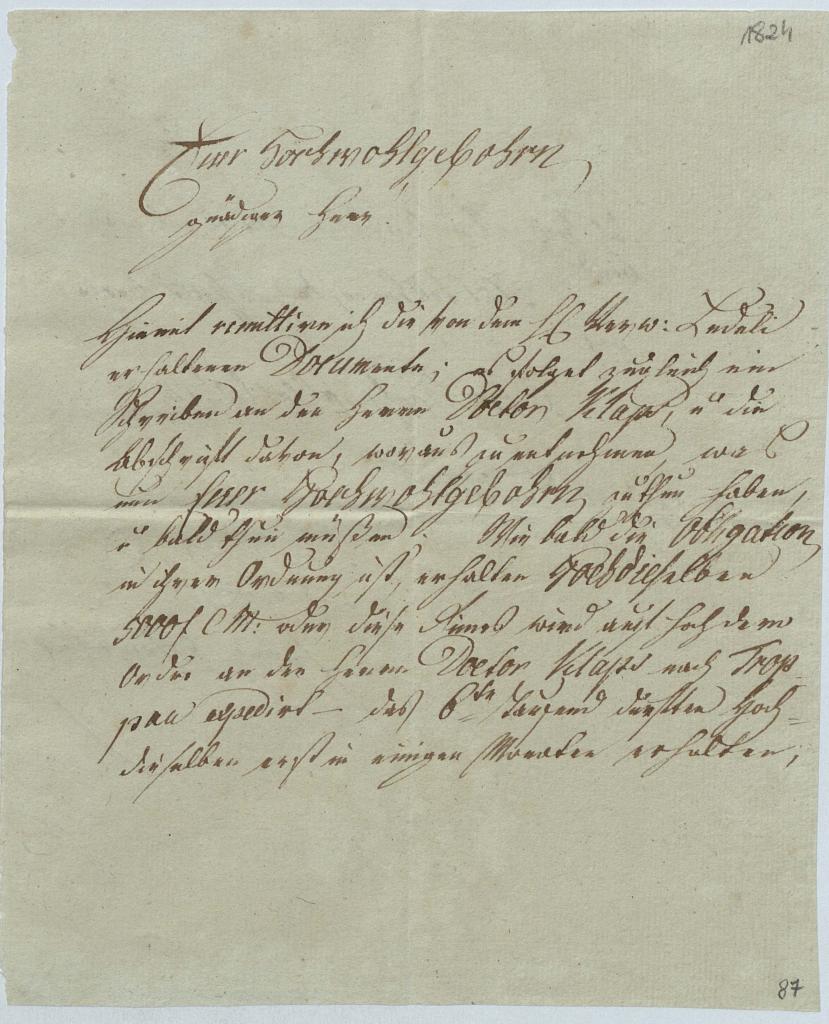 1824
Euer Hochwohlgebohrn,
gnädiger Herr.
Hiemit remittire ich die von dem H Verw: Ledeli
erhaltenen Documente; es folget zugleich ein
Schreiben an den Herrn Doctor Klaps, u die
Abschrift davon, woraus zu entnehmen, was
nun Euer Hochwohlgebohrn zu thun haben,
u bald thun müßen. Wie bald die Obligation
in ihrer Ordnung ist, erhalten Hochdieselben
5000f C M: oder diese wird auf hochdero
Ordre an den Herrn Doctor Klaps nach Trop-
pau expedirt – das 6te Tausend dürften Hoch=
dieselben erst in einigen Monaten erhalten,
87